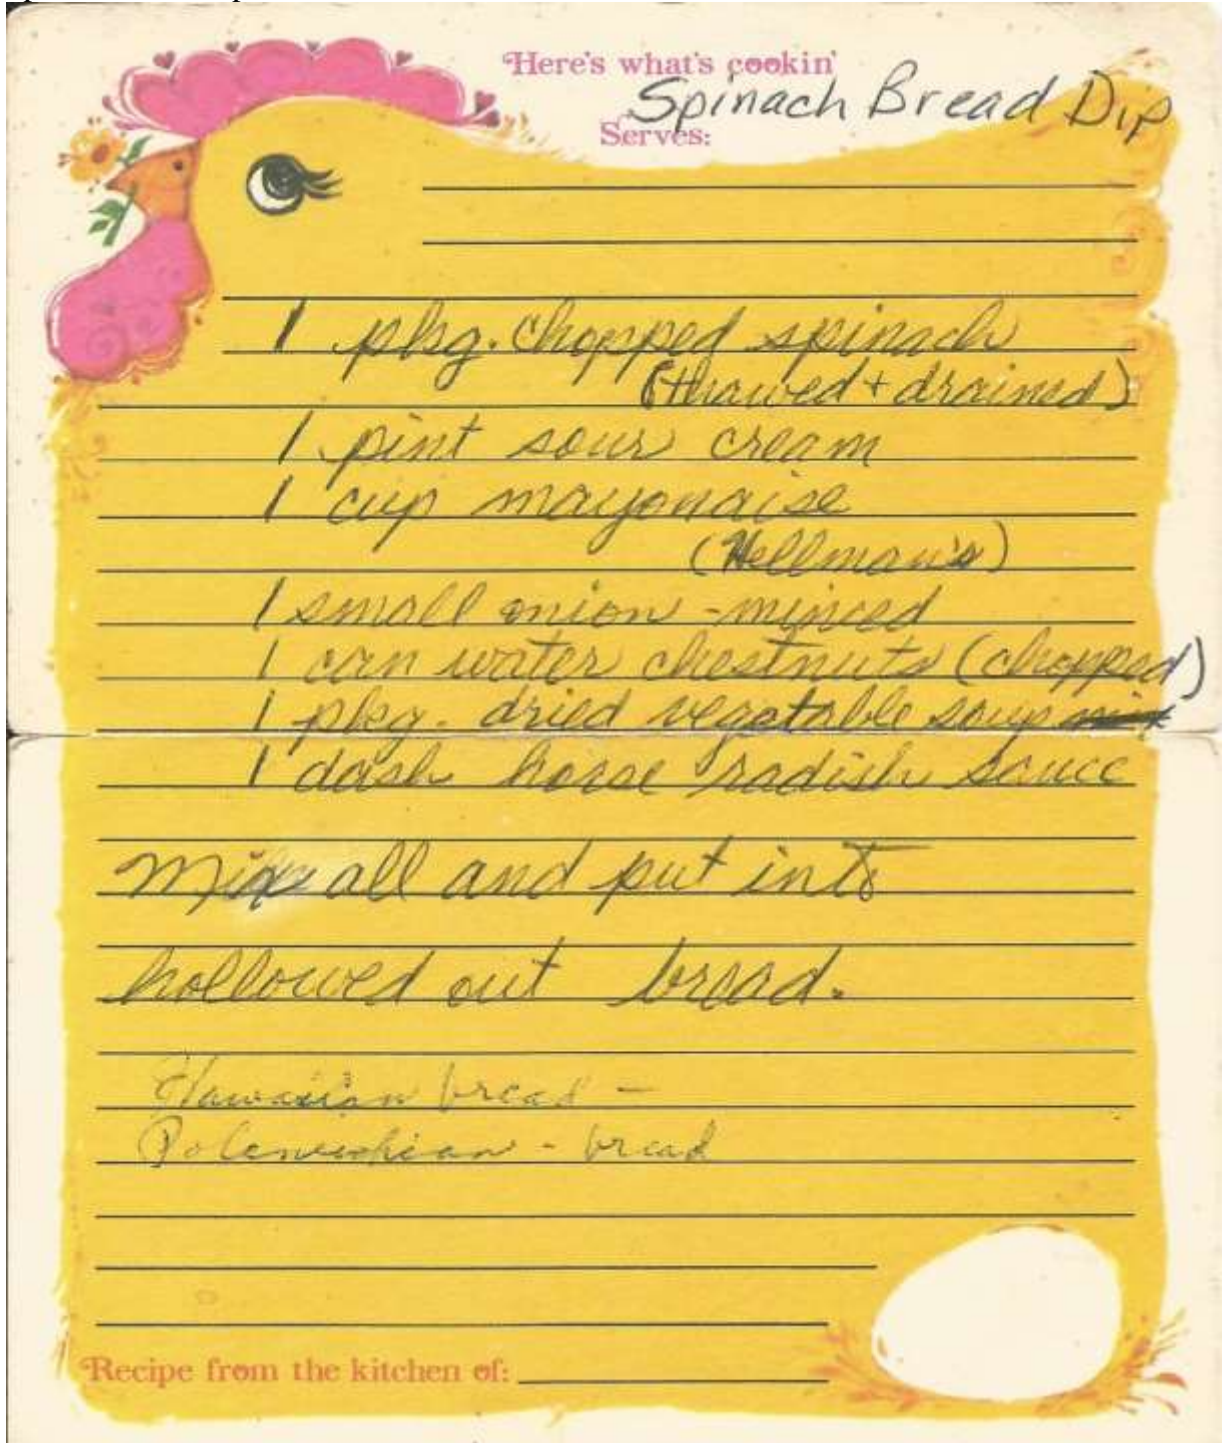 Here's what's cookin'
Spinach Bread Dip
Serves:
1 pkg. chopped spinach
(thawed + drained)
1 pint sour cream
1 cup mayonaise
(Hellman's)
1 small onion - minced
1 can water chestnuts (chopped)
1 pkg. dried vegetable soup
1 dash horse radish sauce
Mix all and put into
hollowed out bread.
Hawaiian bread -
- bread
Recipe from the kitchen of: